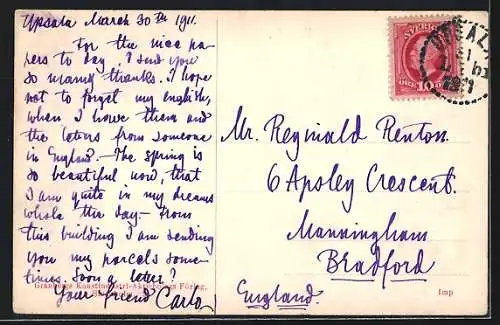 Upsala March 30th 1911.
For the nice pa-
pers to day, I send you
so many thanks. I hope
not to forget my english,
when I have them and
the loters from someone
in England. - The spring is
so beautiful now, that
I am quite in my dreams
whole the day. - From
this building I am sending
you my parcels some-
times. Soon a letter?
Your friend Carlo
Granbergs Konstindustri-Aktiebolags Förlag,
SVERIGE
10
UPSALA
Mr. Reginald Renton.
6 Apsley Crescent.
Manningham
Bradford
England.
Imp